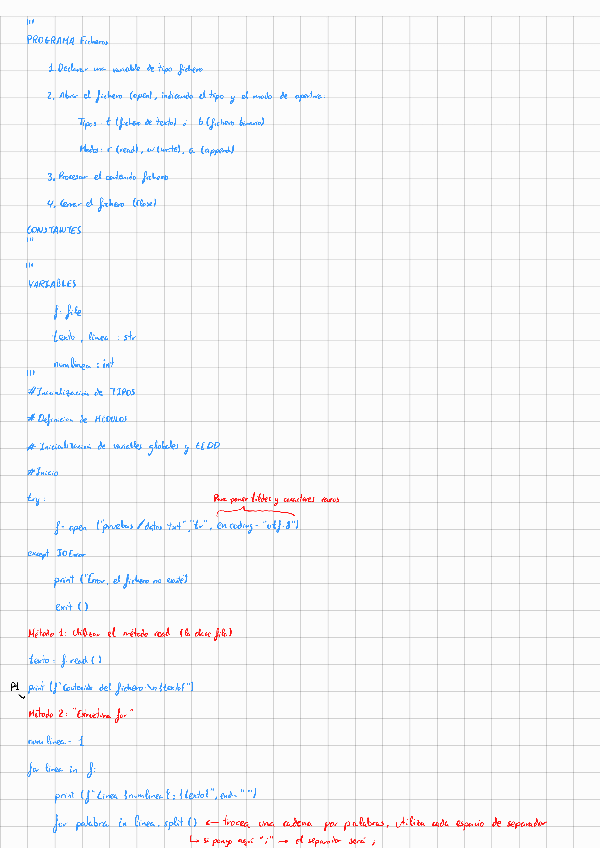 '''
PROGRAMA Ficheros
1. Declarar una variable de tipo fichero
2. Abrir el fichero (open), indicando el tipo y el modo de apertura.
Tipos: t (fichero de texto) ó b (fichero binario)
Modo: r (read), w (write), a (append)
3. Procesar el contenido fichero
4. Cerrar el fichero (close)
CONSTANTES
'''
'''
VARIABLES
f: file
texto, linea : str
numlinea : int
'''
#Inicialización de TIPOS
#Definicion de MÓDULOS
# Inicialización de variables globales y tEDD
#Inicio
try:
Para poner tildes y caracteres raros
f= open ("pruebas/datos.txt","tr", encoding="utf-8")
except IOError
print ("Error, el fichero no existe)
exit ()
Método 1: Utilizar el método read (la clase file)
texto= f.read()
P1 print (f"Contenido del fichero \n{texto}")
Método 2: "Estructura for"
numlinea= 1
for linea in f:
print (f"Linea {numlinea}: {texto}", end= "")
for palabra in linea.split() ← trocea una cadena por palabras. Utiliza cada espacio de separador
↳ si pongo aquí ";" → el separador será ;